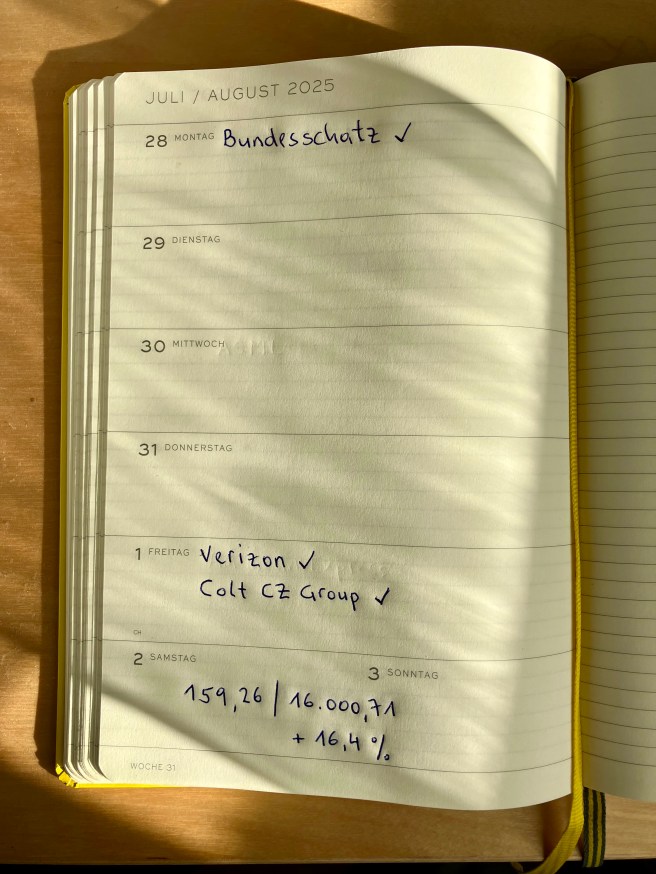 JULI / AUGUST 2025
28 MONTAG Bundesschatz ✓
29 DIENSTAG
30 MITTWOCH
31 DONNERSTAG
1 FREITAG Verizon ✓
Colt CZ Group ✓
CH
2 SAMSTAG
3 SONNTAG
159,26 | 16.000,71
+ 16,4 %
WOCHE 31